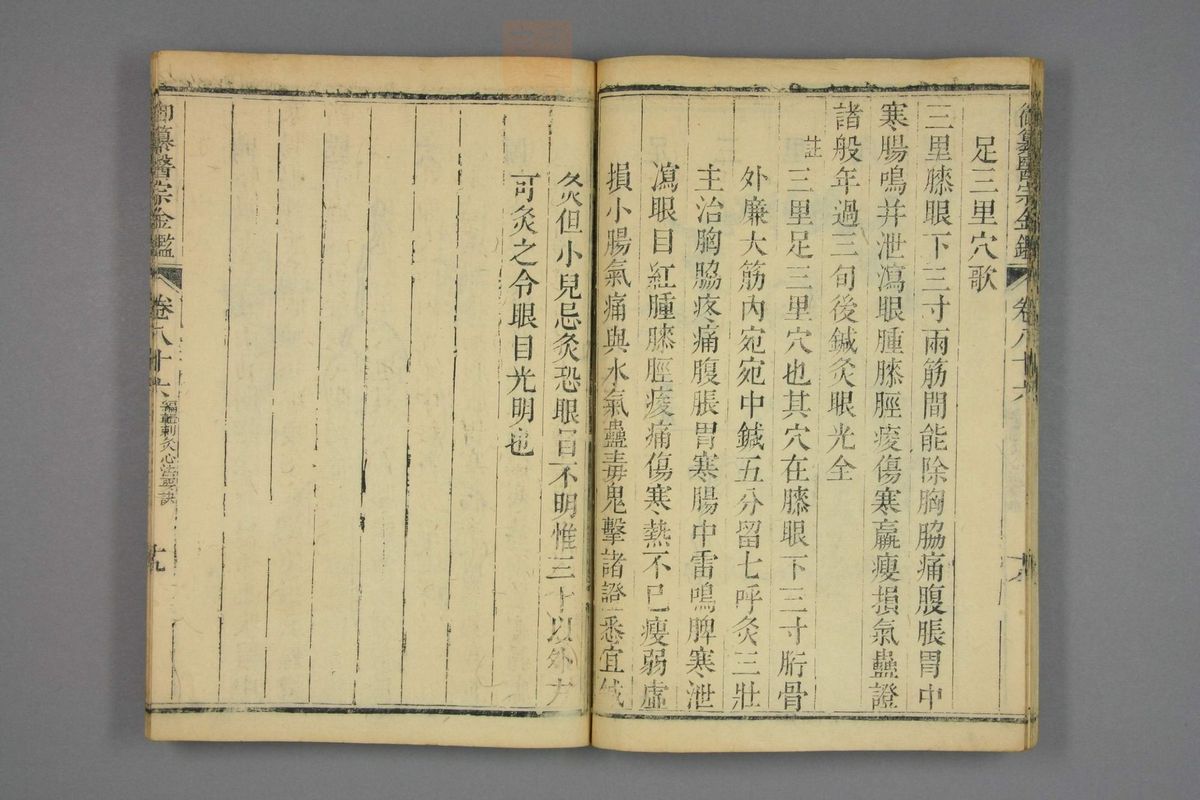 御纂醫宗金鑑 卷八十六
足三里穴歌
三里膝眼下三寸兩筋間能除胸脇痛腹脹胃中
寒腸鳴并泄瀉眼腫膝脛痠傷寒羸瘦損氣蠱證
諸般年過三旬後鍼灸眼光全
註三里足三里穴也其穴在膝眼下三寸䯒骨
外廉大筋內宛宛中鍼五分留七呼灸三壯
主治胸脇疼痛腹脹胃寒腸中雷鳴脾寒泄
瀉眼目紅腫膝脛痠痛傷寒熱不已瘦弱虛
損小腸氣痛與水氣蠱毒鬼擊諸證悉宜鍼
灸但小兒忌灸恐眼目不明惟三十以外方
可灸之令眼目光明也
御纂醫宗金鑑 卷八十六 編輯刺灸心法要訣 十九